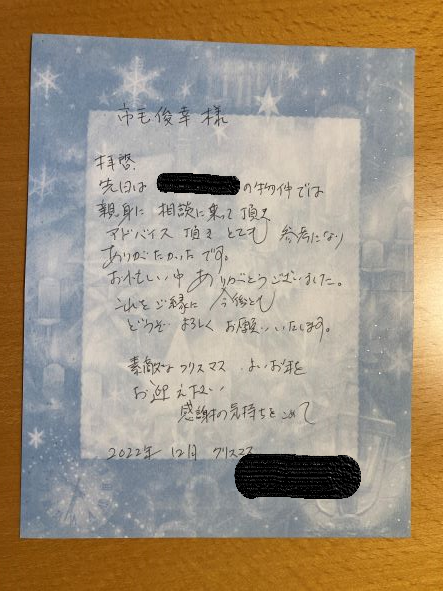 市毛俊幸 様
拝啓
先日は の物件では
親身に 相談に乗って頂き
アドバイス 頂き とても 参考になり
ありがたかったです。
お忙しい中 ありがとうございました。
これをご縁に 今後とも
どうぞ よろしく お願いいたします。
素敵なクリスマス、よいお年を
お迎え下さい
感謝の気持ちをこめて
2022年 12月 クリスマス